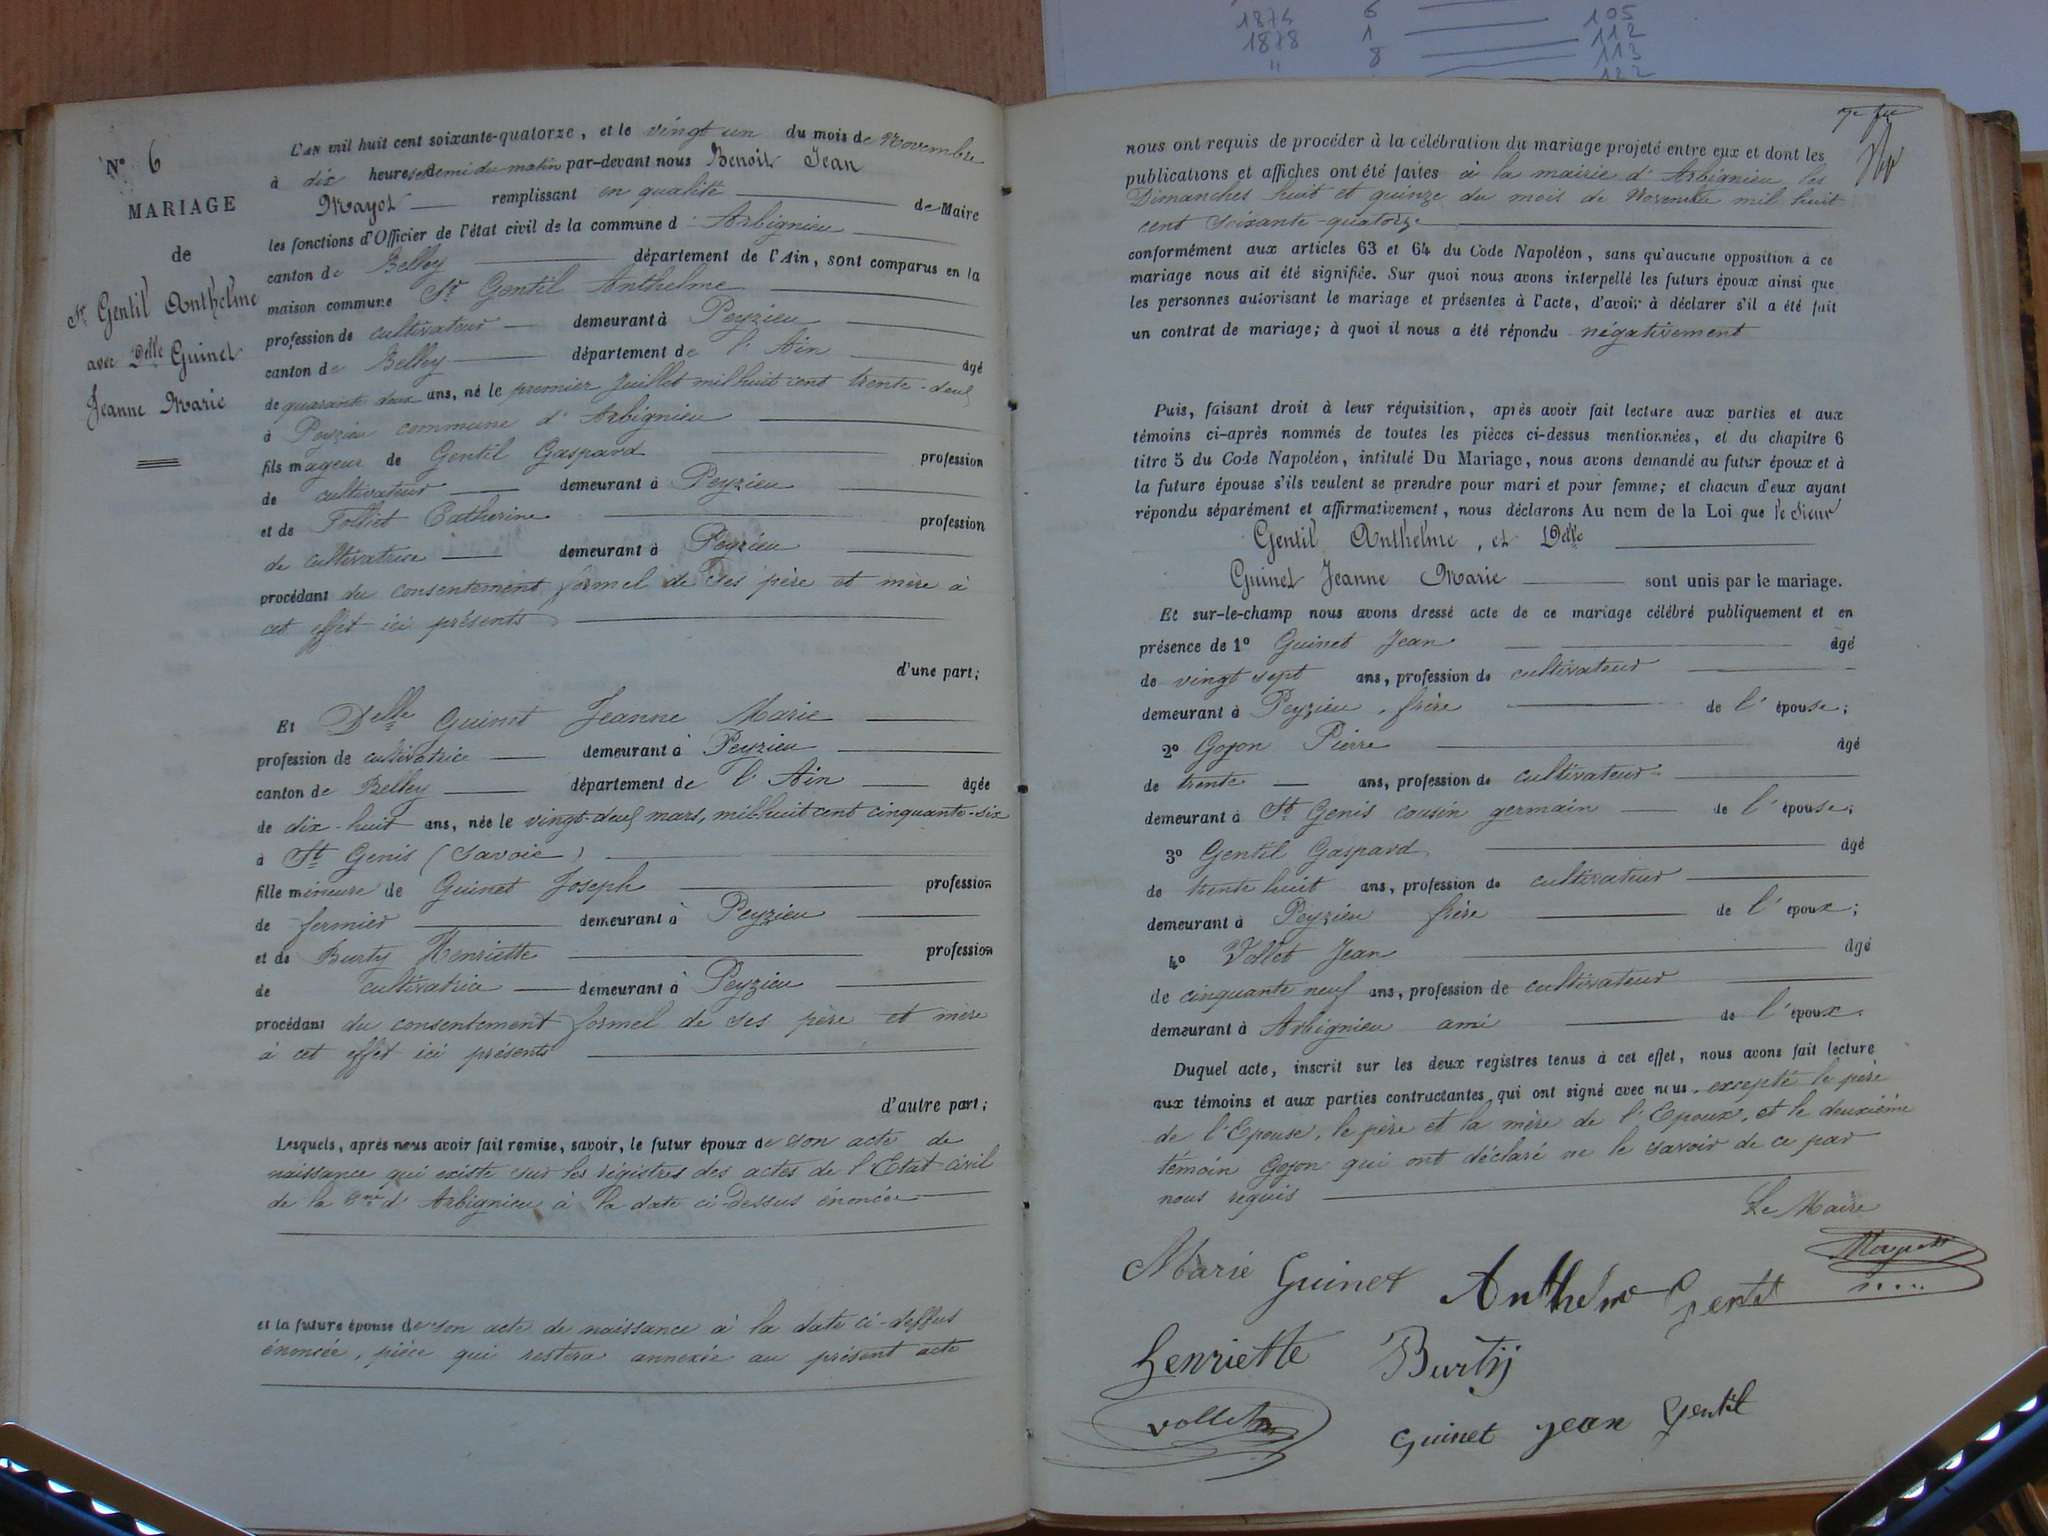 1874 6 105
1878 1 112
" 8 113
122
N° 6
MARIAGE
de
Sr Gentil Anthelme
avec Delle Guinet
Jeanne Marie
L'AN mil huit cent soixante-quatorze, et le vingt un du mois de Novembre
à dix heures et demi du matin par-devant nous Benoit Jean
Mayot remplissant en qualité de Maire
les fonctions d'Officier de l'état civil de la commune d'Arbignieu
canton de Belley département de l'Ain, sont comparus en la
maison commune Sr Gentil Anthelme
profession de cultivateur demeurant à Peyzieu
canton de Belley département de l'Ain âgé
de quarante deux ans, né le premier Juillet mil huit cent trente-deux
à Peyzieu commune d'Arbignieu
fils mageur de Gentil Gaspard profession
de cultivateur demeurant à Peyzieu
et de Folliet Catherine profession
de cultivatrice demeurant à Peyzieu
procédant du consentement formel de ses père et mère à
cet effet ici présents
d'une part;
Et Delle Guinet Jeanne Marie
profession de cultivatrice demeurant à Peyzieu
canton de Belley département de l'Ain âgée
de dix-huit ans, née le vingt-deux mars, mil huit cent cinquante-six
à St Genis (Savoie)
fille mineure de Guinet Joseph profession
de fermier demeurant à Peyzieu
et de Burty Henriette profession
de cultivatrice demeurant à Peyzieu
procédant du consentement formel de ses père et mère
à cet effet ici présents
d'autre part;
Lesquels, après nous avoir fait remise, savoir, le futur époux de son acte de
naissance qui existe sur les régistres des actes de l'Etat civil
de la Cne d'Arbignieu à la date ci-dessus énoncée
et la future épouse de son acte de naissance à la date ci-dessus
énoncée, pièce qui restera annexée au présent acte
nous ont requis de procéder à la célébration du mariage projeté entre eux et dont les
publications et affiches ont été faites à la mairie d'Arbignieu les
Dimanches huit et quinze du mois de Novembre mil huit
cent soixante-quatorze
conformément aux articles 63 et 64 du Code Napoléon, sans qu'aucune opposition à ce
mariage nous ait été signifiée. Sur quoi nous avons interpellé les futurs époux ainsi que
les personnes autorisant le mariage et présentes à l'acte, d'avoir à déclarer s'il a été fait
un contrat de mariage; à quoi il nous a été répondu négativement
Puis, faisant droit à leur réquisition, après avoir fait lecture aux parties et aux
témoins ci-après nommés de toutes les pièces ci-dessus mentionnées, et du chapitre 6
titre 5 du Code Napoléon, intitulé Du Mariage, nous avons demandé au futur époux et à
la future épouse s'ils veulent se prendre pour mari et pour femme; et chacun d'eux ayant
répondu séparément et affirmativement, nous déclarons Au nom de la Loi que le Sieur
Gentil Anthelme, et Delle
Guinet Jeanne Marie sont unis par le mariage.
Et sur-le-champ nous avons dressé acte de ce mariage célébré publiquement et en
présence de 1° Guinet Jean âgé
de vingt sept ans, profession de cultivateur
demeurant à Peyzieu, frère de l'épouse;
2° Gojon Pierre âgé
de trente ans, profession de cultivateur
demeurant à St Genis cousin germain de l'épouse;
3° Gentil Gaspard âgé
de trente huit ans, profession de cultivateur
demeurant à Peyzieu frère de l'époux;
4° Vollet Jean âgé
de cinquante neuf ans, profession de cultivateur
demeurant à Arbignieu ami de l'époux.
Duquel acte, inscrit sur les deux registres tenus à cet effet, nous avons fait lecture
aux témoins et aux parties contractantes qui ont signé avec nous excepté le père
de l'Epouse, le père et la mère de l'Epoux, et le deuxième
témoin Gojon qui ont déclaré ne le savoir de ce par
nous requis
Le Maire
Mayot
Marie Guinet Anthelme Gentil
henriette Burtij
vollet
Guinet jean Gentil